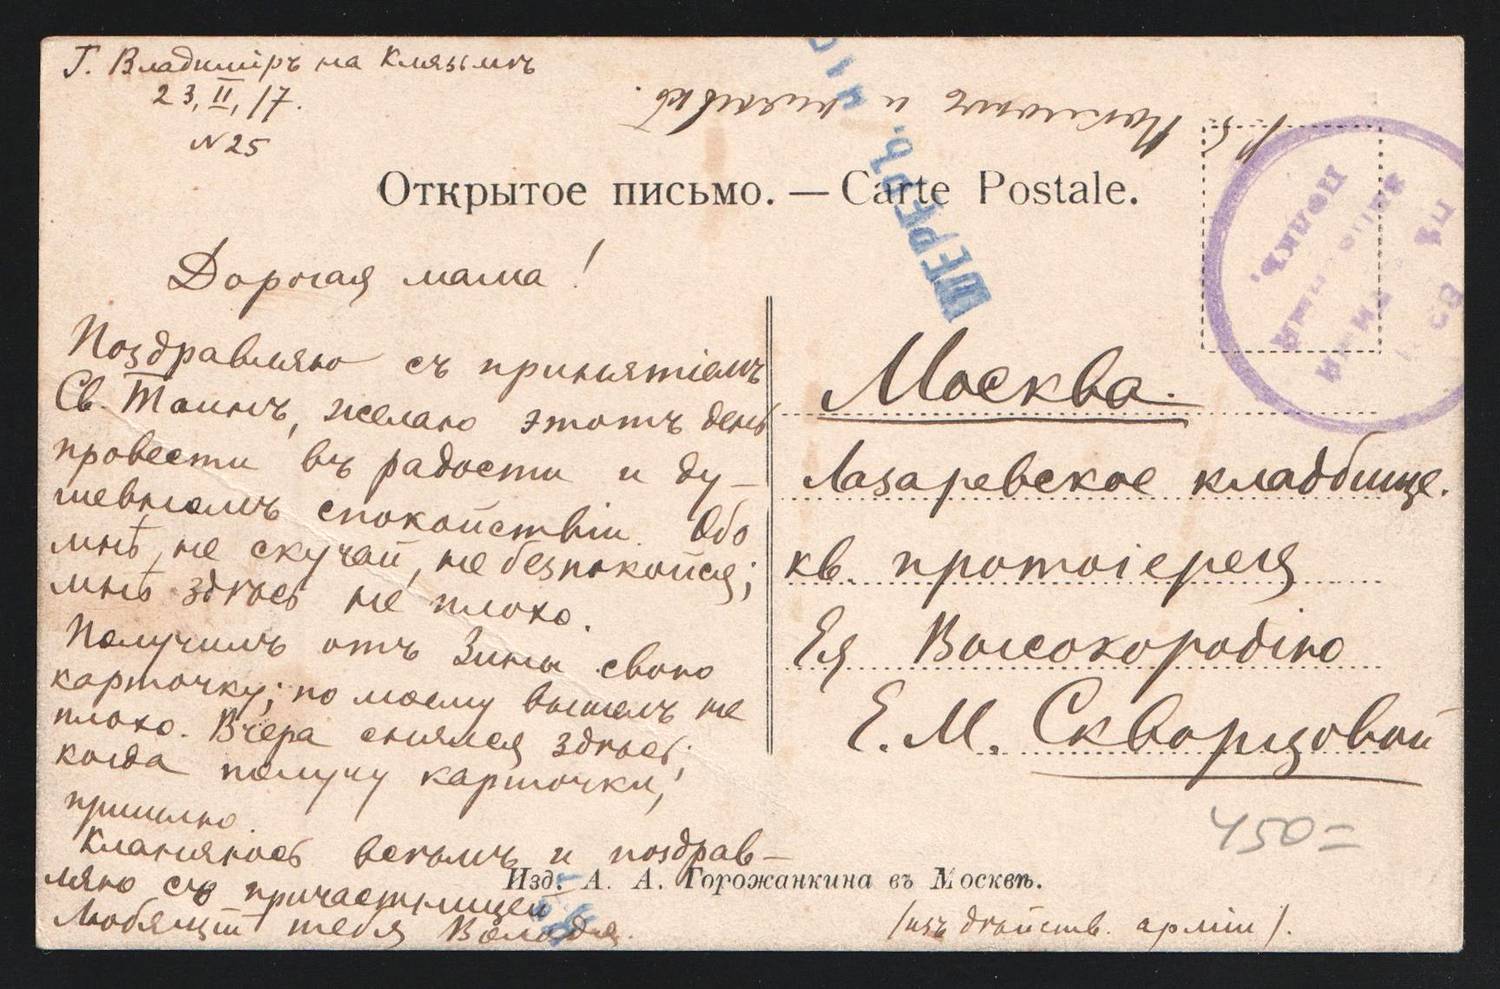 Г. Владиміръ на Клязьмѣ
23, II, 17.
N 25
Открытое письмо. — Carte Postale.
Дорогая мама!
Поздравляю съ принятіемъ
Св. Таинъ, желаю этотъ день
провести въ радости и ду-
шевномъ спокойствіи. Обо
мнѣ, не скучай, не безпокойся;
мнѣ здѣсь не плохо.
Получилъ отъ Зины свою
карточку; по моему вышелъ не
плохо. Вчера снялся здѣсь;
когда получу карточки,
пришлю.
Кланяюсь всѣмъ и поздрав-
ляю съ причастницей
Любящій тебя Володя.
Москва.
Лазаревское кладбище.
кв. протоіерея
Ея Высокородію
Е. М. Скворцовой
450=
Изд. А. А. Горожанкина въ Москвѣ.
/изъ дѣйств. арміи/.
и
полкъ.